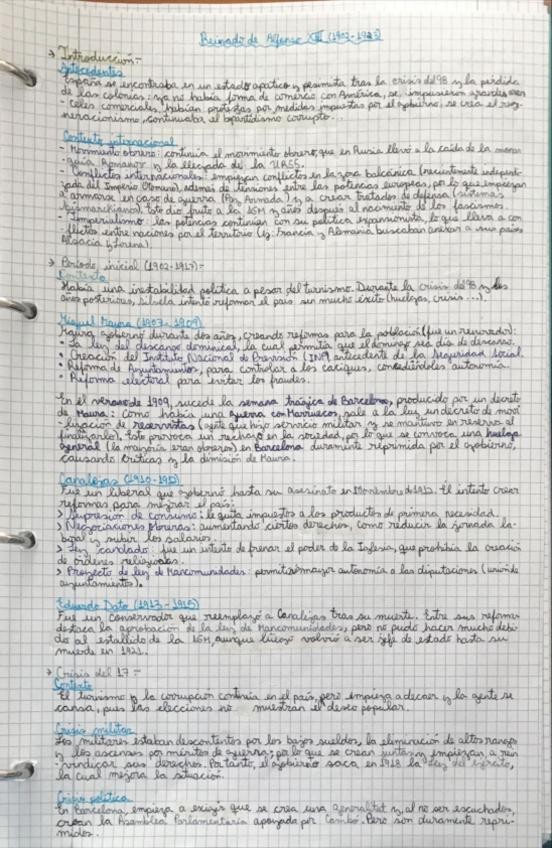 Reinado de Alfonso XIII (1902-1923)
→ Introducción:-
Antecedentes
España se encontraba en un estado apático y pesimista tras la crisis del 98 y la pérdida
de las colonias: ya no había forma de comercio con América, se impusieron aranceles
comerciales, habían protestas por medidas impuestas por el gobierno, se crea el reg-
neracionismo, continuaba el bipartidismo corrupto...
Contexto internacional
- Movimiento obrero: continúa el movimiento obrero, que en Rusia llevó a la caída de la monar-
quía Romanov y la llegada de la URSS.
- Conflictos internacionales: empiezan conflictos en la zona balcánica (recientemente independi-
zada del Imperio Otomano), además de tensiones entre las potencias europeas, por lo que empiezan
a armarse en caso de guerra (Paz Armada) y a crear tratados de defensa (sistemas
Bismarckianos). Esto dio fruto a la IGM y años después al nacimiento de los fascismos.
- Imperialismo: las potencias continúan con su política expansionista, lo que lleva a con-
flictos entre naciones por el territorio (ej: Francia y Alemania buscaban anexar a sus países
Alsacia y Lorena).
→ Período inicial (1902-1917):-
Contexto
Había una inestabilidad política a pesar del turnismo. Durante la crisis del 98 y los
años posteriores, Silvela intentó reformar el país sin mucho éxito (huelgas, crisis...).
Miguel Maura (1907-1909)
Maura gobernó durante dos años, creando reformas para la población (fue un renovador):
• La ley del descanso dominical, la cual permitía que el domingo sea día de descanso.
• Creación del Instituto Nacional de Previsión (INP), antecedente de la Seguridad Social.
• Reforma de Ayuntamientos, para controlar a los caciques, concediéndoles autonomía.
• Reforma electoral para evitar los fraudes.
En el verano de 1909, sucede la semana trágica de Barcelona, producido por un decreto
de Maura: como había una guerra con Marruecos, sale a la luz un decreto de movi-
lización de reservistas (gente que hizo servicio militar y se mantuvo en reserva al
finalizarlo). Esto provoca un rechazo en la sociedad, por lo que se convoca una huelga
general (la mayoría eran obreros) en Barcelona duramente reprimida por el gobierno,
causando críticas y la dimisión de Maura.
Canalejas (1910-1912)
Fue un liberal que gobernó hasta su asesinato en noviembre de 1912. Él intentó crear
reformas para mejorar el país:
> Supresión de consumo: le quita impuestos a los productos de primera necesidad.
> Negociaciones obreras: aumentando ciertos derechos, como reducir la jornada la-
boral y subir los salarios.
> Ley "candado": fue un intento de frenar el poder de la Iglesia, que prohibía la creación
de órdenes religiosas.
> Proyecto de ley de Mancomunidades: permitía mayor autonomía a las diputaciones (unión de
ayuntamientos).
Eduardo Dato (1913-1915)
Fue un conservador que reemplazó a Canalejas tras su muerte. Entre sus reformas
destaca la aprobación de la ley de Mancomunidades, pero no pudo hacer mucho debi-
do al estallido de la IGM, aunque luego volvió a ser jefe de estado hasta su
muerte en 1921.
→ Crisis del 17:-
Contexto
El turnismo y la corrupción continúa en el país, pero empieza a decaer y la gente se
cansa, pues las elecciones no muestran el deseo popular.
Crisis militar
Los militares estaban descontentos por los bajos sueldos, la eliminación de altos rangos
y los ascensos por méritos de guerra, por lo que se crean juntas y empiezan a rein-
vindicar sus derechos. Por tanto, el gobierno saca en 1918 la "Ley del ejército",
la cual mejora la situación.
Crisis política
En Barcelona, empieza a exigir que se crea una generalitat y, al no ser escuchados,
crean la Asamblea Parlamentaria apoyada por Cambó. Pero son duramente repri-
midos.